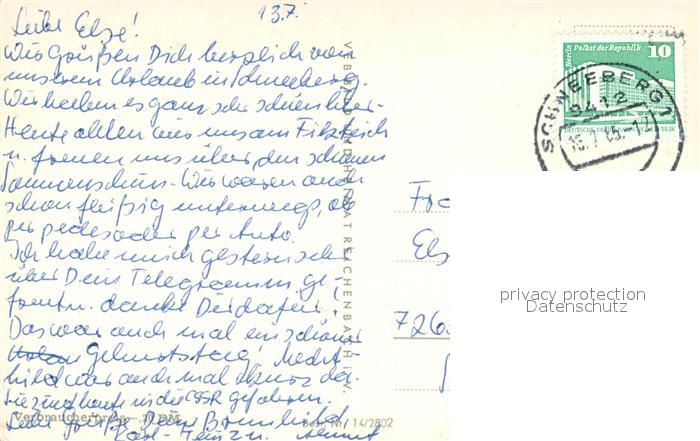 13.7.
Liebe Else!
Wir Grüßen Dich herzlich von
unserem Urlaub in Schneeberg.
Wir haben es ganz sehr schön hier.
Heute aalen wir uns am Filzteich
u. freuen uns über den schönen
Sonnenschein. Wir waren auch
schon fleißig unterwegs, ob
per pedes oder per Auto.
Ich habe mich gestern sehr
über Dein Telegramm ge-
freut u. danke Dir dafür!
Das war auch mal ein schöner
Geburtstag!
war auch mal
heute in der ČSSR gefahren.
Liebe Grüße Deine
Karl-Heinz u.
VERLAG BILD UND HEIMAT REICHENBACH i. V.
Verbraucherpreis
Best.-Nr. 14/2802
Berlin, Palast der Republik
10
DEUTSCHE DEMOKRATISCHE REPUBLIK
SCHNEEBERG 1
9412
Fra
Els
726
privacy protection
Datenschutz